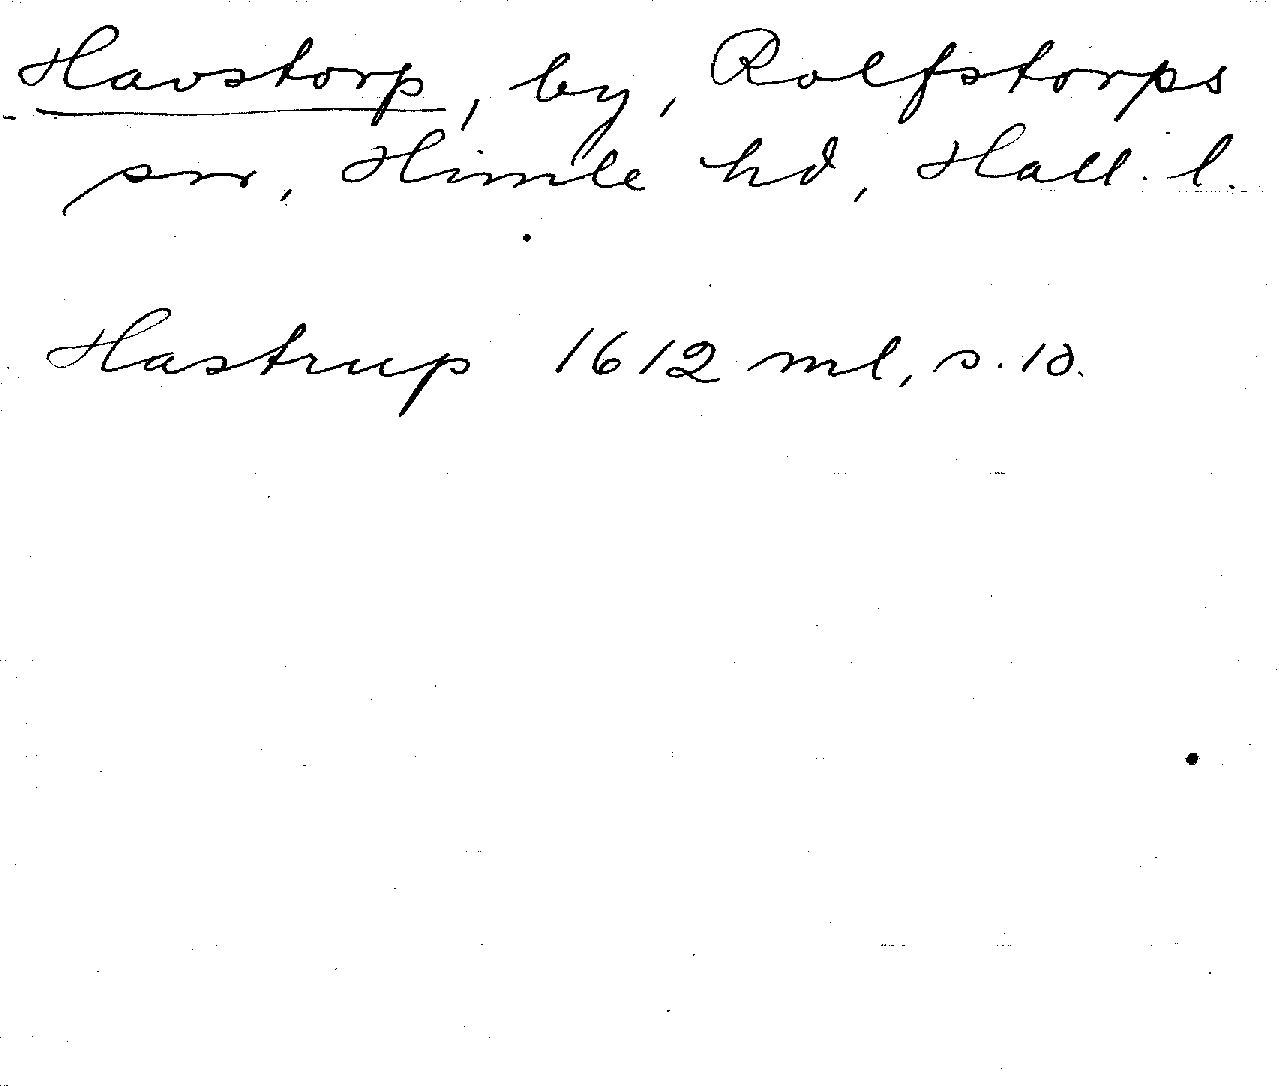 Havstorp, by, Rolfstorps
sn, Himle hd, Hall. l.
Hastrup 1612 ml, s. 10.